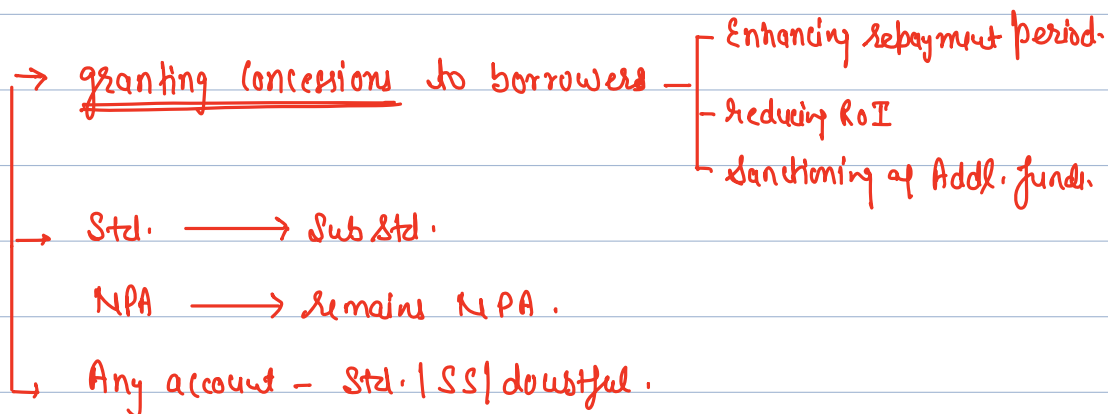 → granting concessions to borrowers
Enhancing repayment period.
reducing RoI
Sanctioning of Addl. funds.
Std. → Sub Std.
NPA → remains NPA.
Any account - Std. | SS | doubtful.